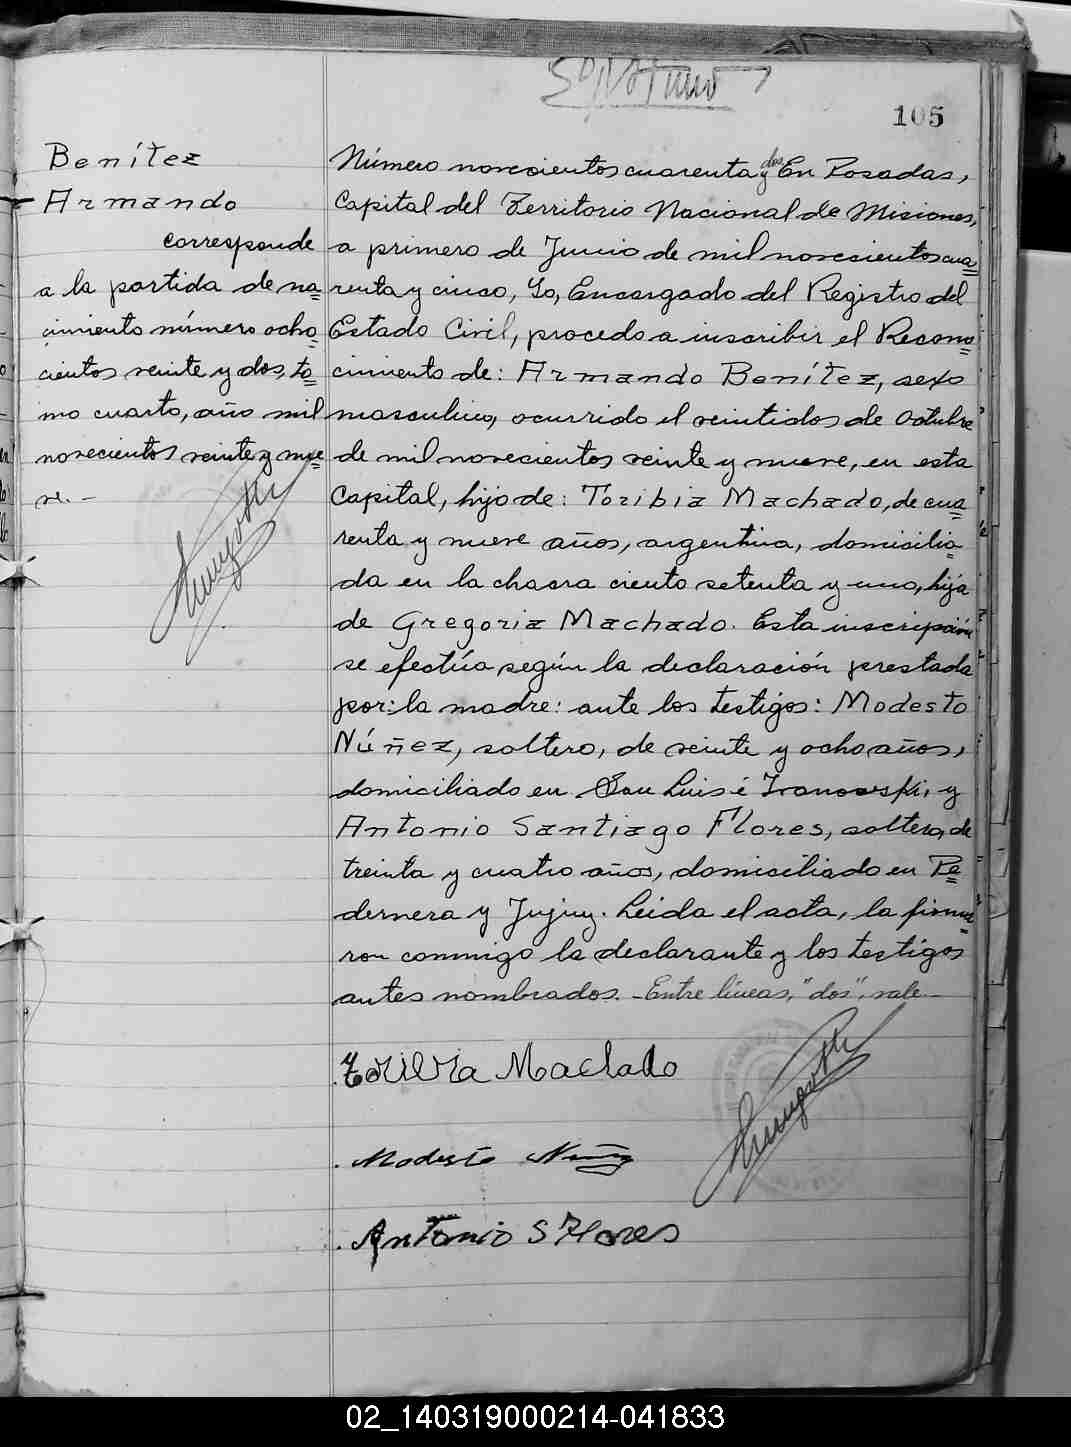 105
Benítez
Armando
corresponde
a la partida de na=
cimiento número ocho=
cientos veinte y dos, to=
mo cuarto, año mil
novecientos veinte y nue=
ve. -
Número novecientos cuarenta y dos En Posadas,
Capital del Territorio Nacional de Misiones,
a primero de Junio de mil novecientos cua=
renta y cinco, Yo, Encargado del Registro del
Estado Civil, procedo a inscribir el Recono=
cimiento de: Armando Benítez, sexo
masculino, ocurrido el veintidos de Octubre
de mil novecientos veinte y nueve, en esta
Capital, hijo de: Toribia Machado, de cua=
renta y nueve años, argentina, domicilia=
da en la chacra ciento setenta y uno, hija
de Gregoria Machado. Esta inscripción
se efectúa, según la declaración prestada
por: la madre: ante los testigos: Modesto
Núñez, soltero, de veinte y ocho años,
domiciliado en San Luis é Ivanowski, y
Antonio Santiago Flores, soltero, de
treinta y cuatro años, domiciliado en Pe=
dernera y Jujuy. Leida el acta, la firma=
ron conmigo la declarante y los testigos
antes nombrados. - Entre líneas, "dos", vale -
Toribia Machado
Modesto Núñez
Antonio S Flores
02_140319000214-041833